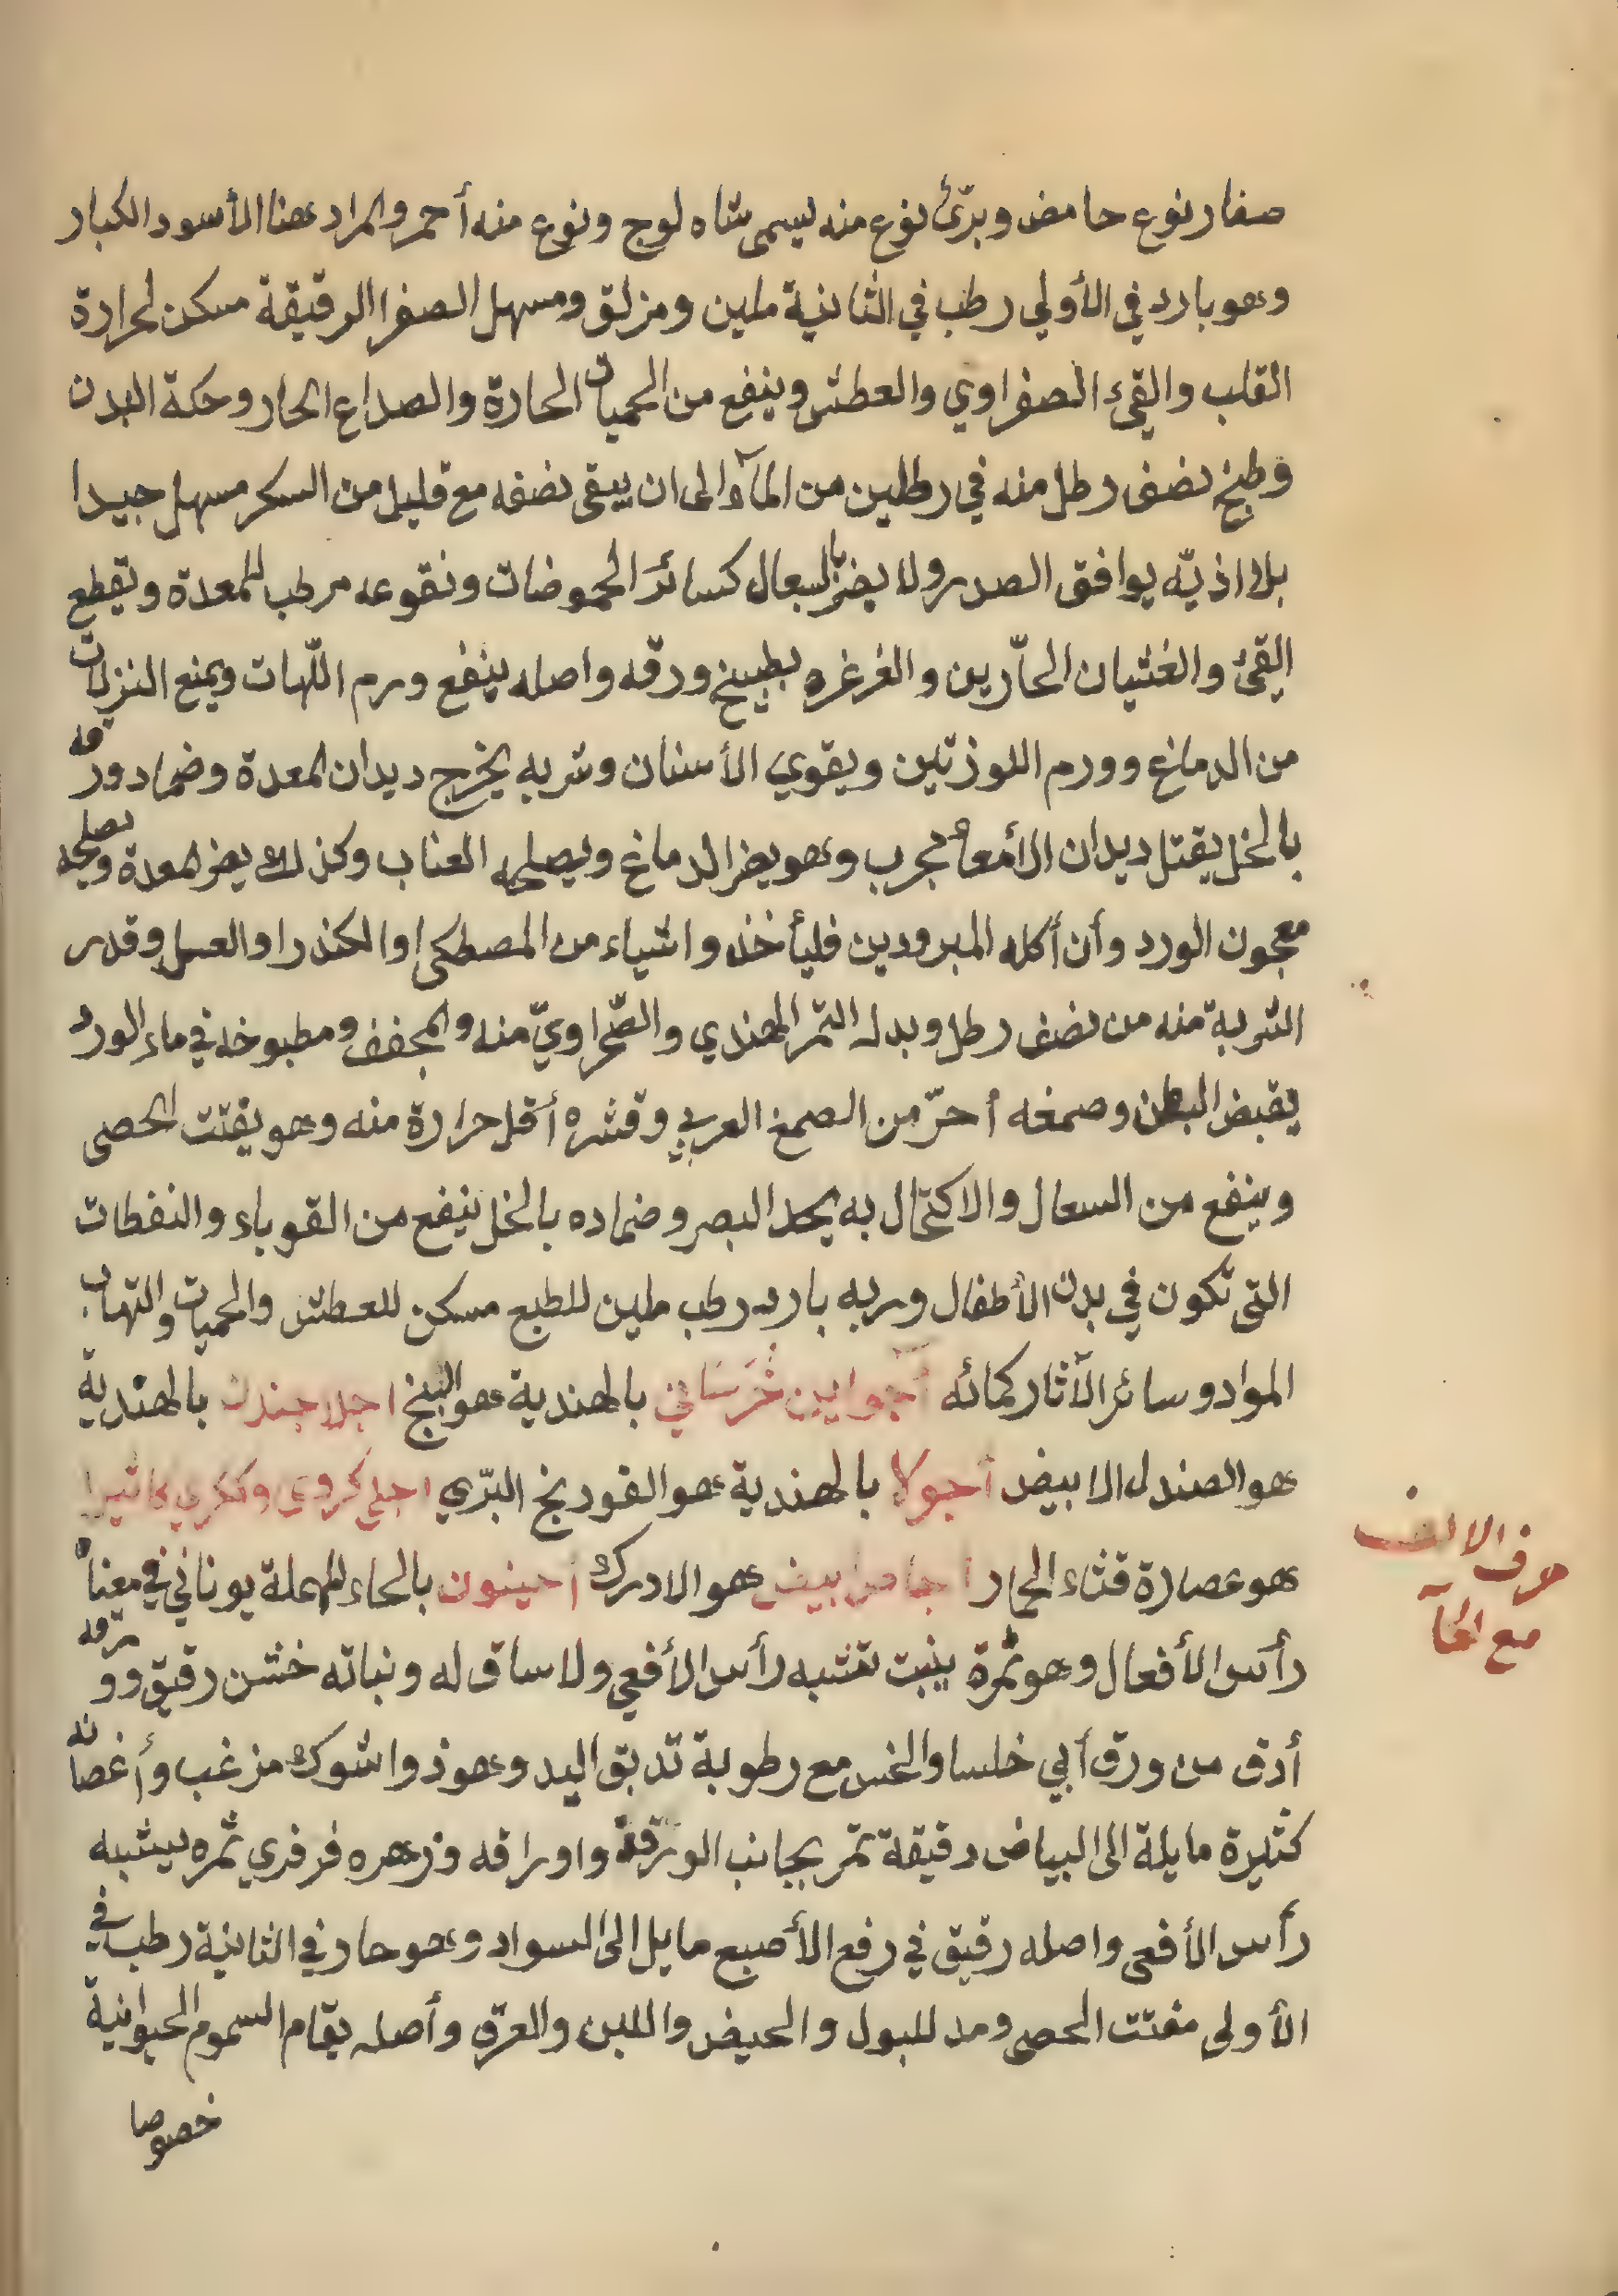 صغار نوع حامض وبرّئ نوع منه يسمى شاه لوج ونوع منه أحمر والمراد هنا الأسود الكبار
وهو بارد في الأولي رطب في الثانية ملين ومزلق ومسهل الصفرا الرقيقة مسكن لحرارة
القلب والقيء الصفراوي والعطش وينفع من الحميات الحارة والصداع الحار وحكة البدن
وطبخ نصف رطل منه في رطلين من المآء الى ان يبقى نصفه مع قليل من السكر مسهل جيدا
بلا اذيّه يوافق الصدر ولا يضر بالسعال كسائر الحموضات ونقوعه مرطب للمعدة ويقطع
القئ والغثيان الحارّين والغرغره بطبيخ ورقه واصله ينفع ورم اللّهات ويمنع النزلات
من الدماغ وورم اللوزتين ويقوي الأسنان وشربه يخرج ديدان المعدة وضماد ورقه
بالخل يقتل ديدان الأمعاء مجرب وهو يضر الدماغ ويصلحه العناب وكذلك يضر المعدة ويصلحه
معجون الورد وأن أكله المبرودين فليأخذوا شياء من المصطكى او الكندر او العسل وقدر
الشربة منه من نصف رطل وبدله التمر الهندي والصّحراويّ منه والمجفف ومطبوخه في ماء الورد
يقبض البطن وصمغه أحرّ من الصمغ العربي وقشره أقل حرارة منه وهو يفتت الحصى
وينفع من السعال والاكتحال به يحد البصر وضماده بالخل ينفع من القوباء والنفطات
التي تكون في بدن الأطفال وربه بارد رطب ملين للطبع مسكن للعطش والحميات والتهاب
المواد وسائر الآثار كمائه أجوايين خُرَسَاني بالهندية هو البنج اجلا جندن بالهندية
هو الصندل الابيض أجولا بالهندية هو الفودنج البرّي اجلي كروي وككري كاثيرا
هو عصارة قثاء الحمار اجاص ابيض هو الادرك أحينون بالحاء المهملة يوناني في معناه
رأس الأفعال وهو ثمرة ينبت تشبه رأس الأفعي ولا ساق له ونباته خشن رقيق وورقه
أدق من ورق أبي خلسا والخس مع رطوبة تدبق اليد وهو ذوا شوك مزغب وأغصانه
كثيرة مايلة الى البياض دقيقة تمر بجانب الورقة واوراقه وزهره فرفري ثمره يشبه
رأس الأفعى واصله رقيق في رفع الأصبع مايل الى السواد وهو حار في الثانية رطب في
الأولى مفتت الحصى ومد للبول والحيض واللبن والعرق وأصله يقام السموم الحيوانية
خصوصا
حرف الالف
مع الحآ